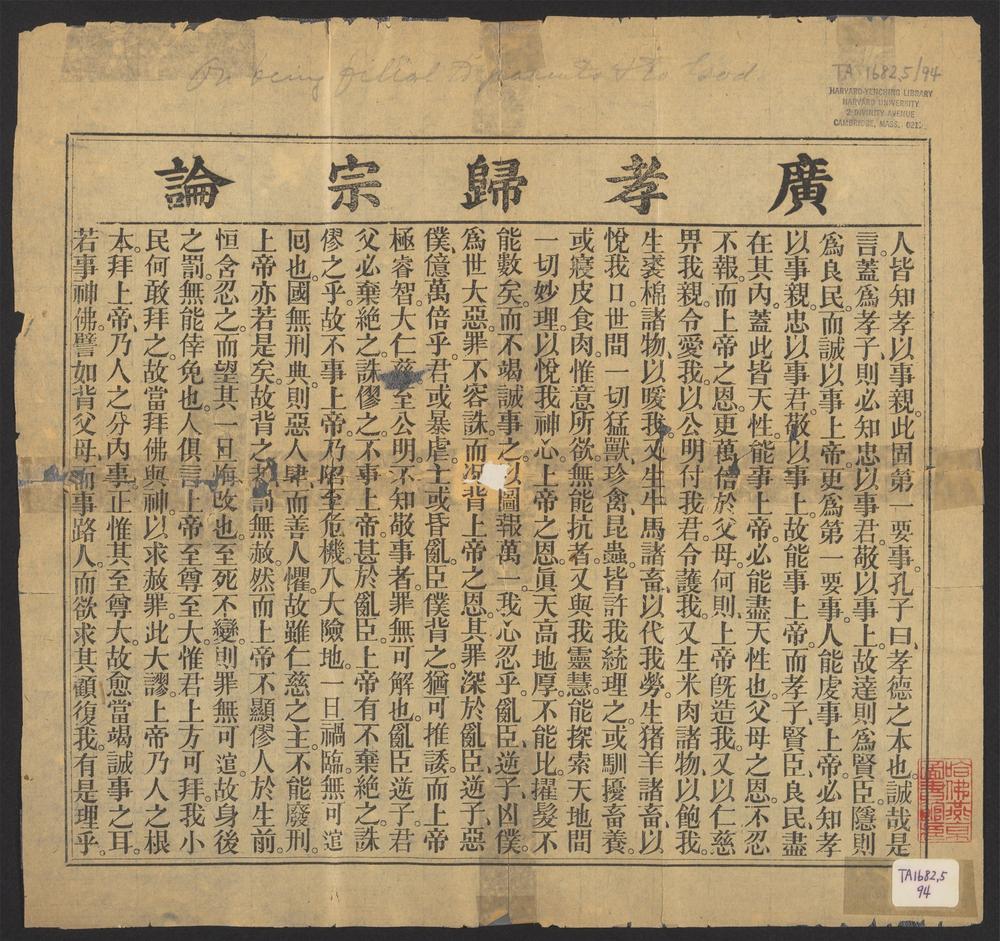 On being filial to parents & to God
TA 1682.5/94
HARVARD-YENCHING LIBRARY
HARVARD UNIVERSITY
2 DIVINITY AVENUE
CAMBRIDGE, MASS. 0213
廣孝歸宗論
人皆知孝以事親。此固第一要事。孔子曰、孝德之本也。誠哉是
言。蓋爲孝子、則必知忠以事君。敬以事上。故達則爲賢臣、隱則
爲良民。而誠以事上帝、更爲第一要事。人能虔事上帝、必知孝
以事親。忠以事君。敬以事上。故能事上帝、而孝子、賢臣、良民、盡
在其內。蓋此皆天性。能事上帝、必能盡天性也。父母之恩、不忍
不報。而上帝之恩、更萬倍於父母。何則、上帝旣造我、又以仁慈
畀我親、令愛我。以公明付我君、令護我。又生米肉諸物、以飽我。
生裘棉諸物、以煖我。又生牛馬諸畜、以代我勞。生猪羊諸畜、以
悅我口。世間一切猛獸、珍禽、昆蟲、皆許我統理之。或馴擾畜養
或寢皮食肉、惟意所欲、無能抗者。又與我靈慧、能探索天地間
一切妙理、以悅我神心。上帝之恩、眞天高地厚、不能比擢髮不
能數矣。而不竭誠事之、以圖報萬一、我心忍乎。亂臣、逆子、凶僕、
爲世大惡、罪不容誅。而況背上帝之恩、其罪深於亂臣、逆子、惡
僕、億萬倍乎。君或暴虐、主或昏亂、臣僕背之、猶可推諉。而上帝
極睿智、大仁慈、至公明、不知敬事者、罪無可解也。亂臣逆子、君
父必棄絶之、誅僇之。不事上帝、甚於亂臣、上帝有不棄絶之、誅
僇之乎。故不事上帝、乃蹈至危機、入大險地。一旦禍臨、無可逭
囘也。國無刑典、則惡人肆而善人懼、故雖仁慈之主、不能廢刑。
上帝亦若是矣。故背之者、罰無赦。然而上帝不顯僇人於生前、
恒含忍之、而望其一旦悔改也。至死不變、則罪無可逭、故身後
之罰、無能倖免也。人俱言上帝至尊至大、惟君上方可拜、我小
民何敢拜之。故當拜佛與神、以求赦罪、此大謬。上帝乃人之根
本。拜上帝、乃人之分內事、正惟其至尊大、故愈當竭誠事之耳。
若事神佛、譬如背父母、而事路人、而欲求其顧復我、有是理乎。
TA1682.5
94